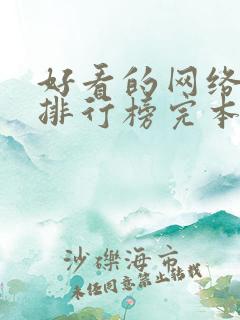 好看的网络
排行榜完本
沙砾海市
未经同意禁止转载